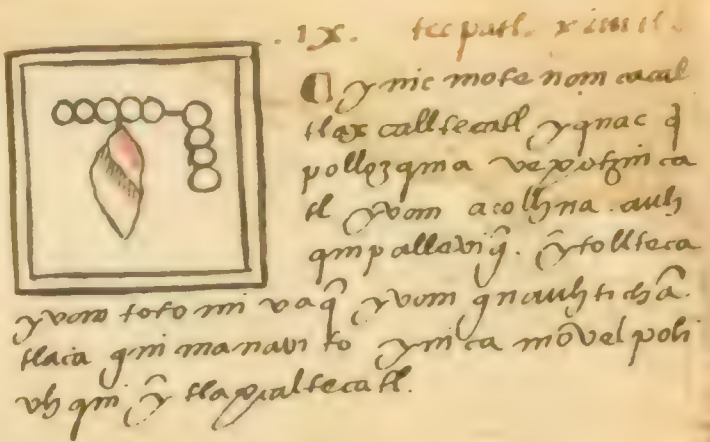 .ix. tecpatl. xiuitl.
ynic mote nom cacal
tlax calltecatl yquac q̄
pollozquia vexotzinca
tl yvan acolhua. auh
quipalleviq̄. ỹ tollteca
yvan totomi vaq̄ yvan quauhtichā.
tlaca quimanavi to ynica mōvel poli
uh qui ỹ tlaxcaltecatl.